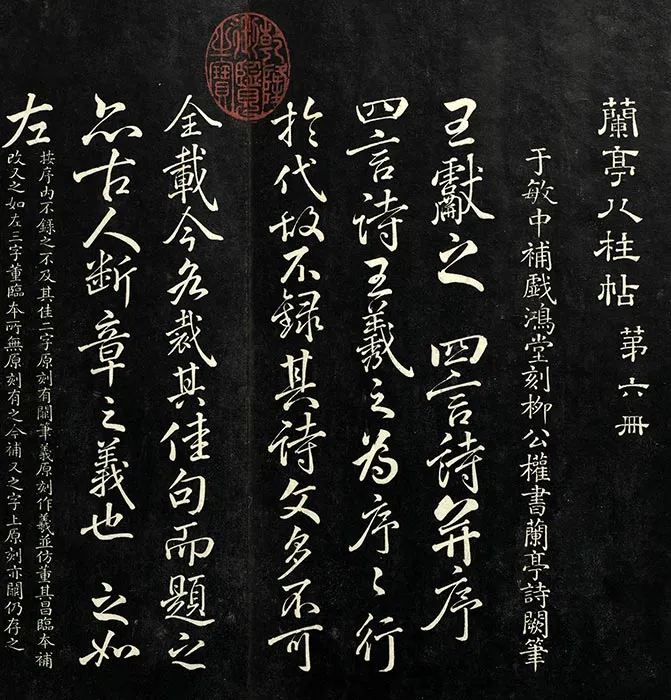 蘭亭八柱帖 第六冊
于敏中補戲鴻堂刻柳公權書蘭亭詩闕筆
王獻之 四言詩并序
四言詩王羲之為序〻行
於代故不錄其詩文多不可
全載今各裁其佳句而題之
亦古人斷章之義也 之如
左
按序內不錄之不及其佳二字原刻有闕筆義原刻作羲並仿董其昌臨本補
改又之如左三字董臨本所無原刻有之今補又之字上原刻亦闕仍存之
乾隆御覽之寶